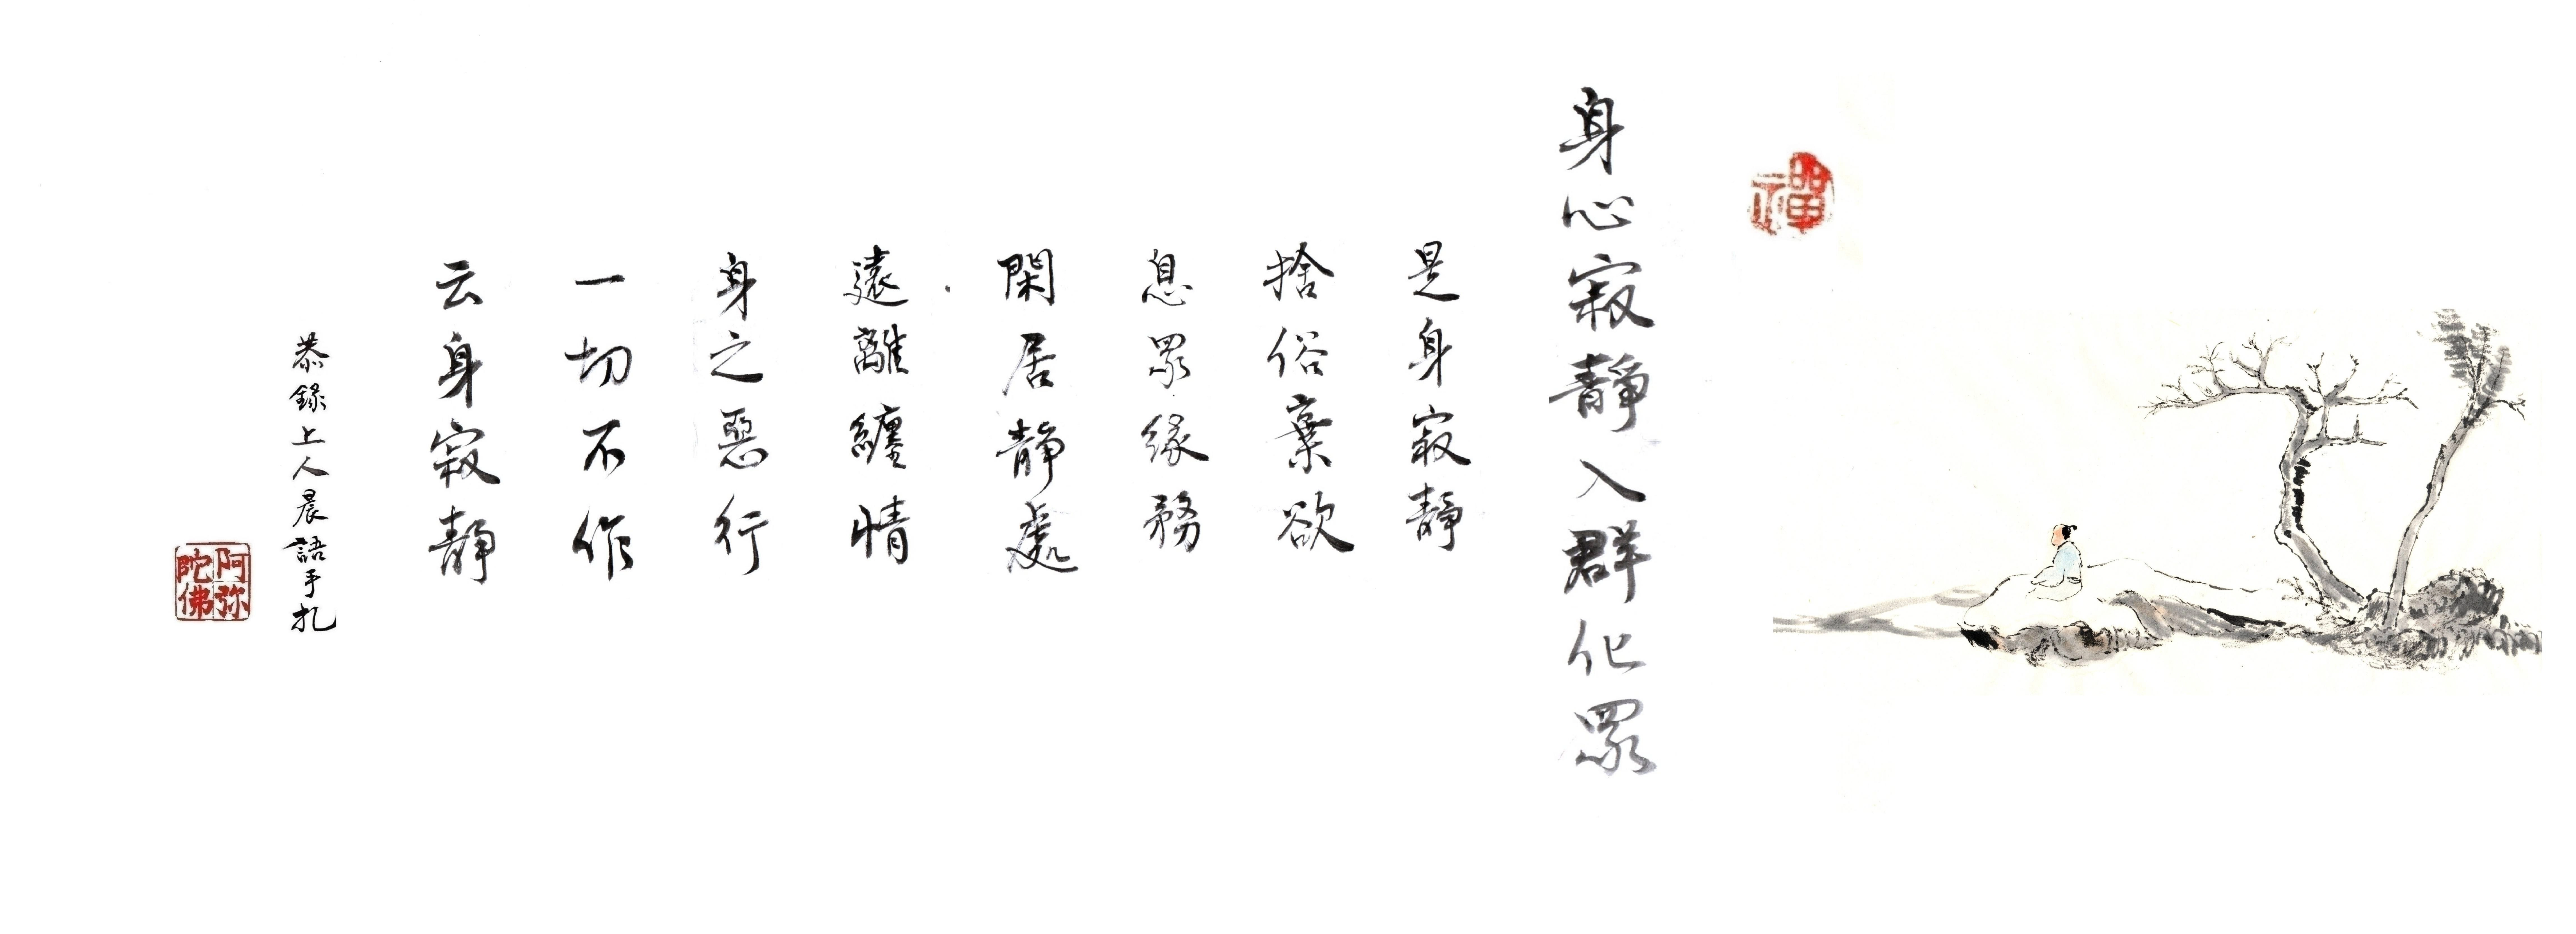 禪
身心寂靜入群化眾
是身寂靜
捨俗棄欲
息眾緣務
閑居靜處
遠離纏情
身之惡行
一切不作
云身寂靜
恭錄上人晨語手札
阿弥陀佛